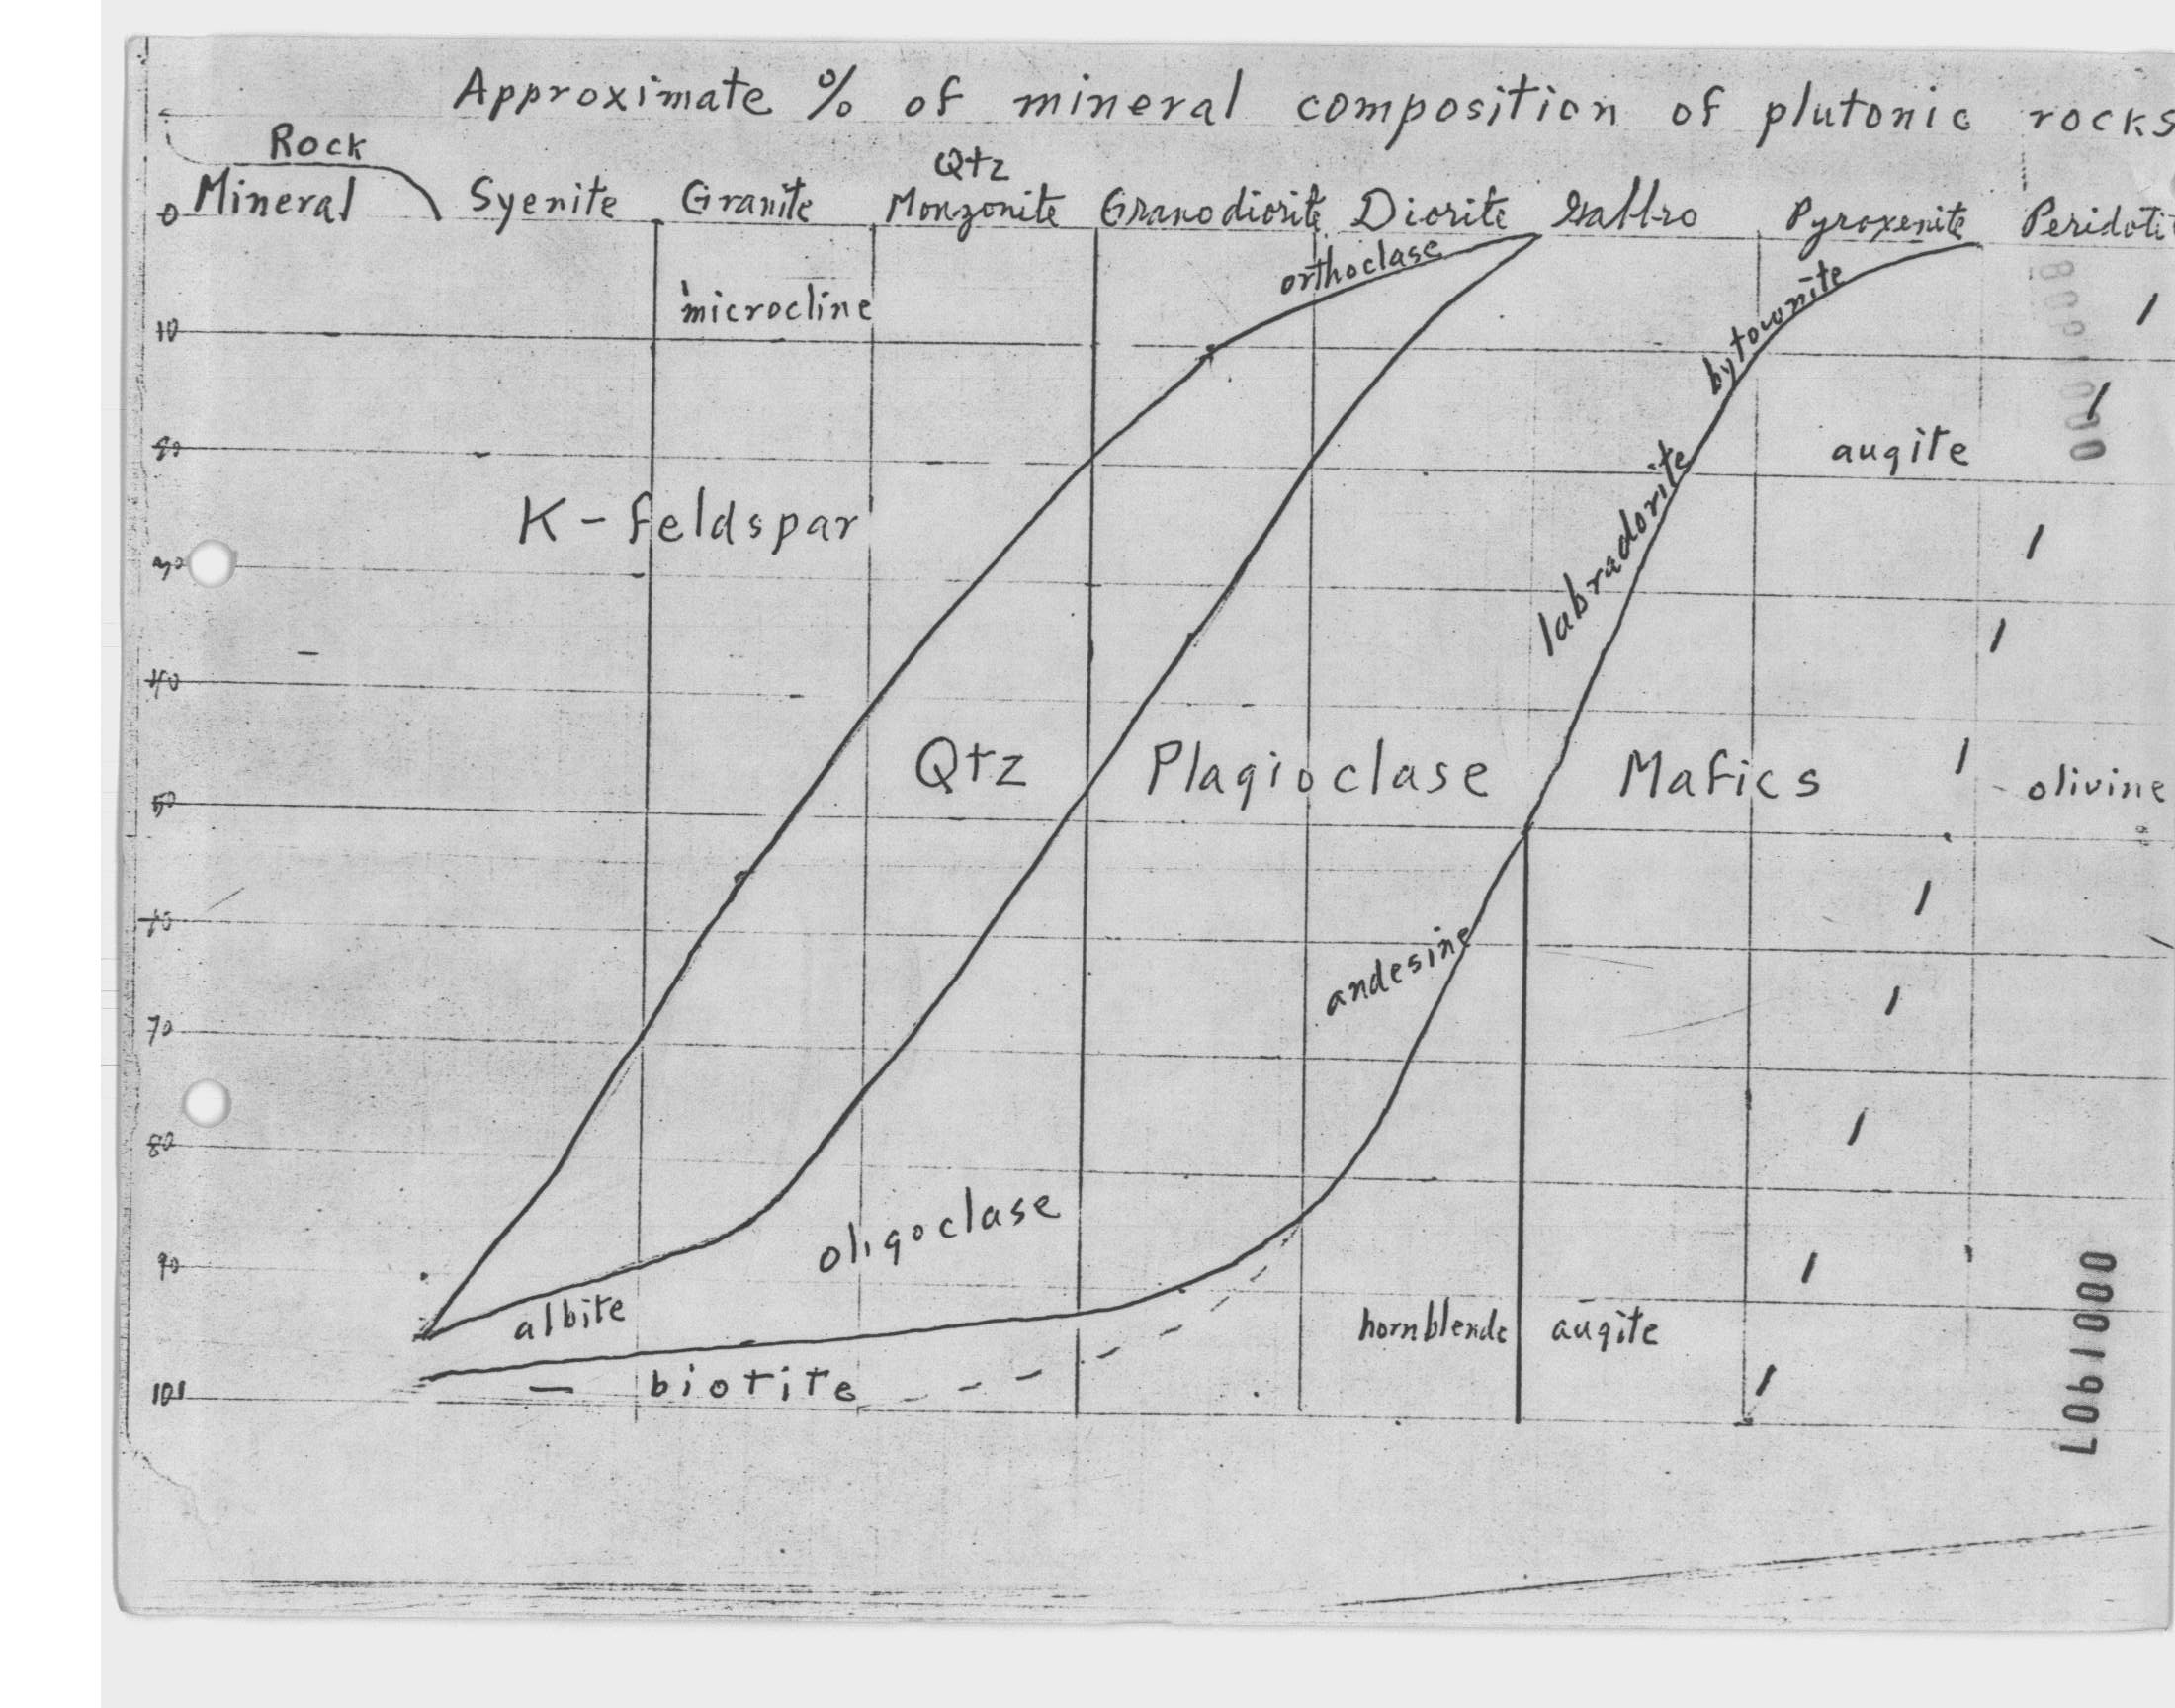 Approximate % of mineral composition of plutonic rocks
Rock
Mineral
Syenite Granite Qtz Monzonite Granodiorite Diorite Gabbro Pyroxenite Peridoti
0
orthoclase
microcline
bytownite
10
augite
20
labradorite
K-feldspar
30
40
Qtz Plagioclase Mafics olivine
50
andesine
70
80
oligoclase
90
albite hornblende augite
biotite
0001907